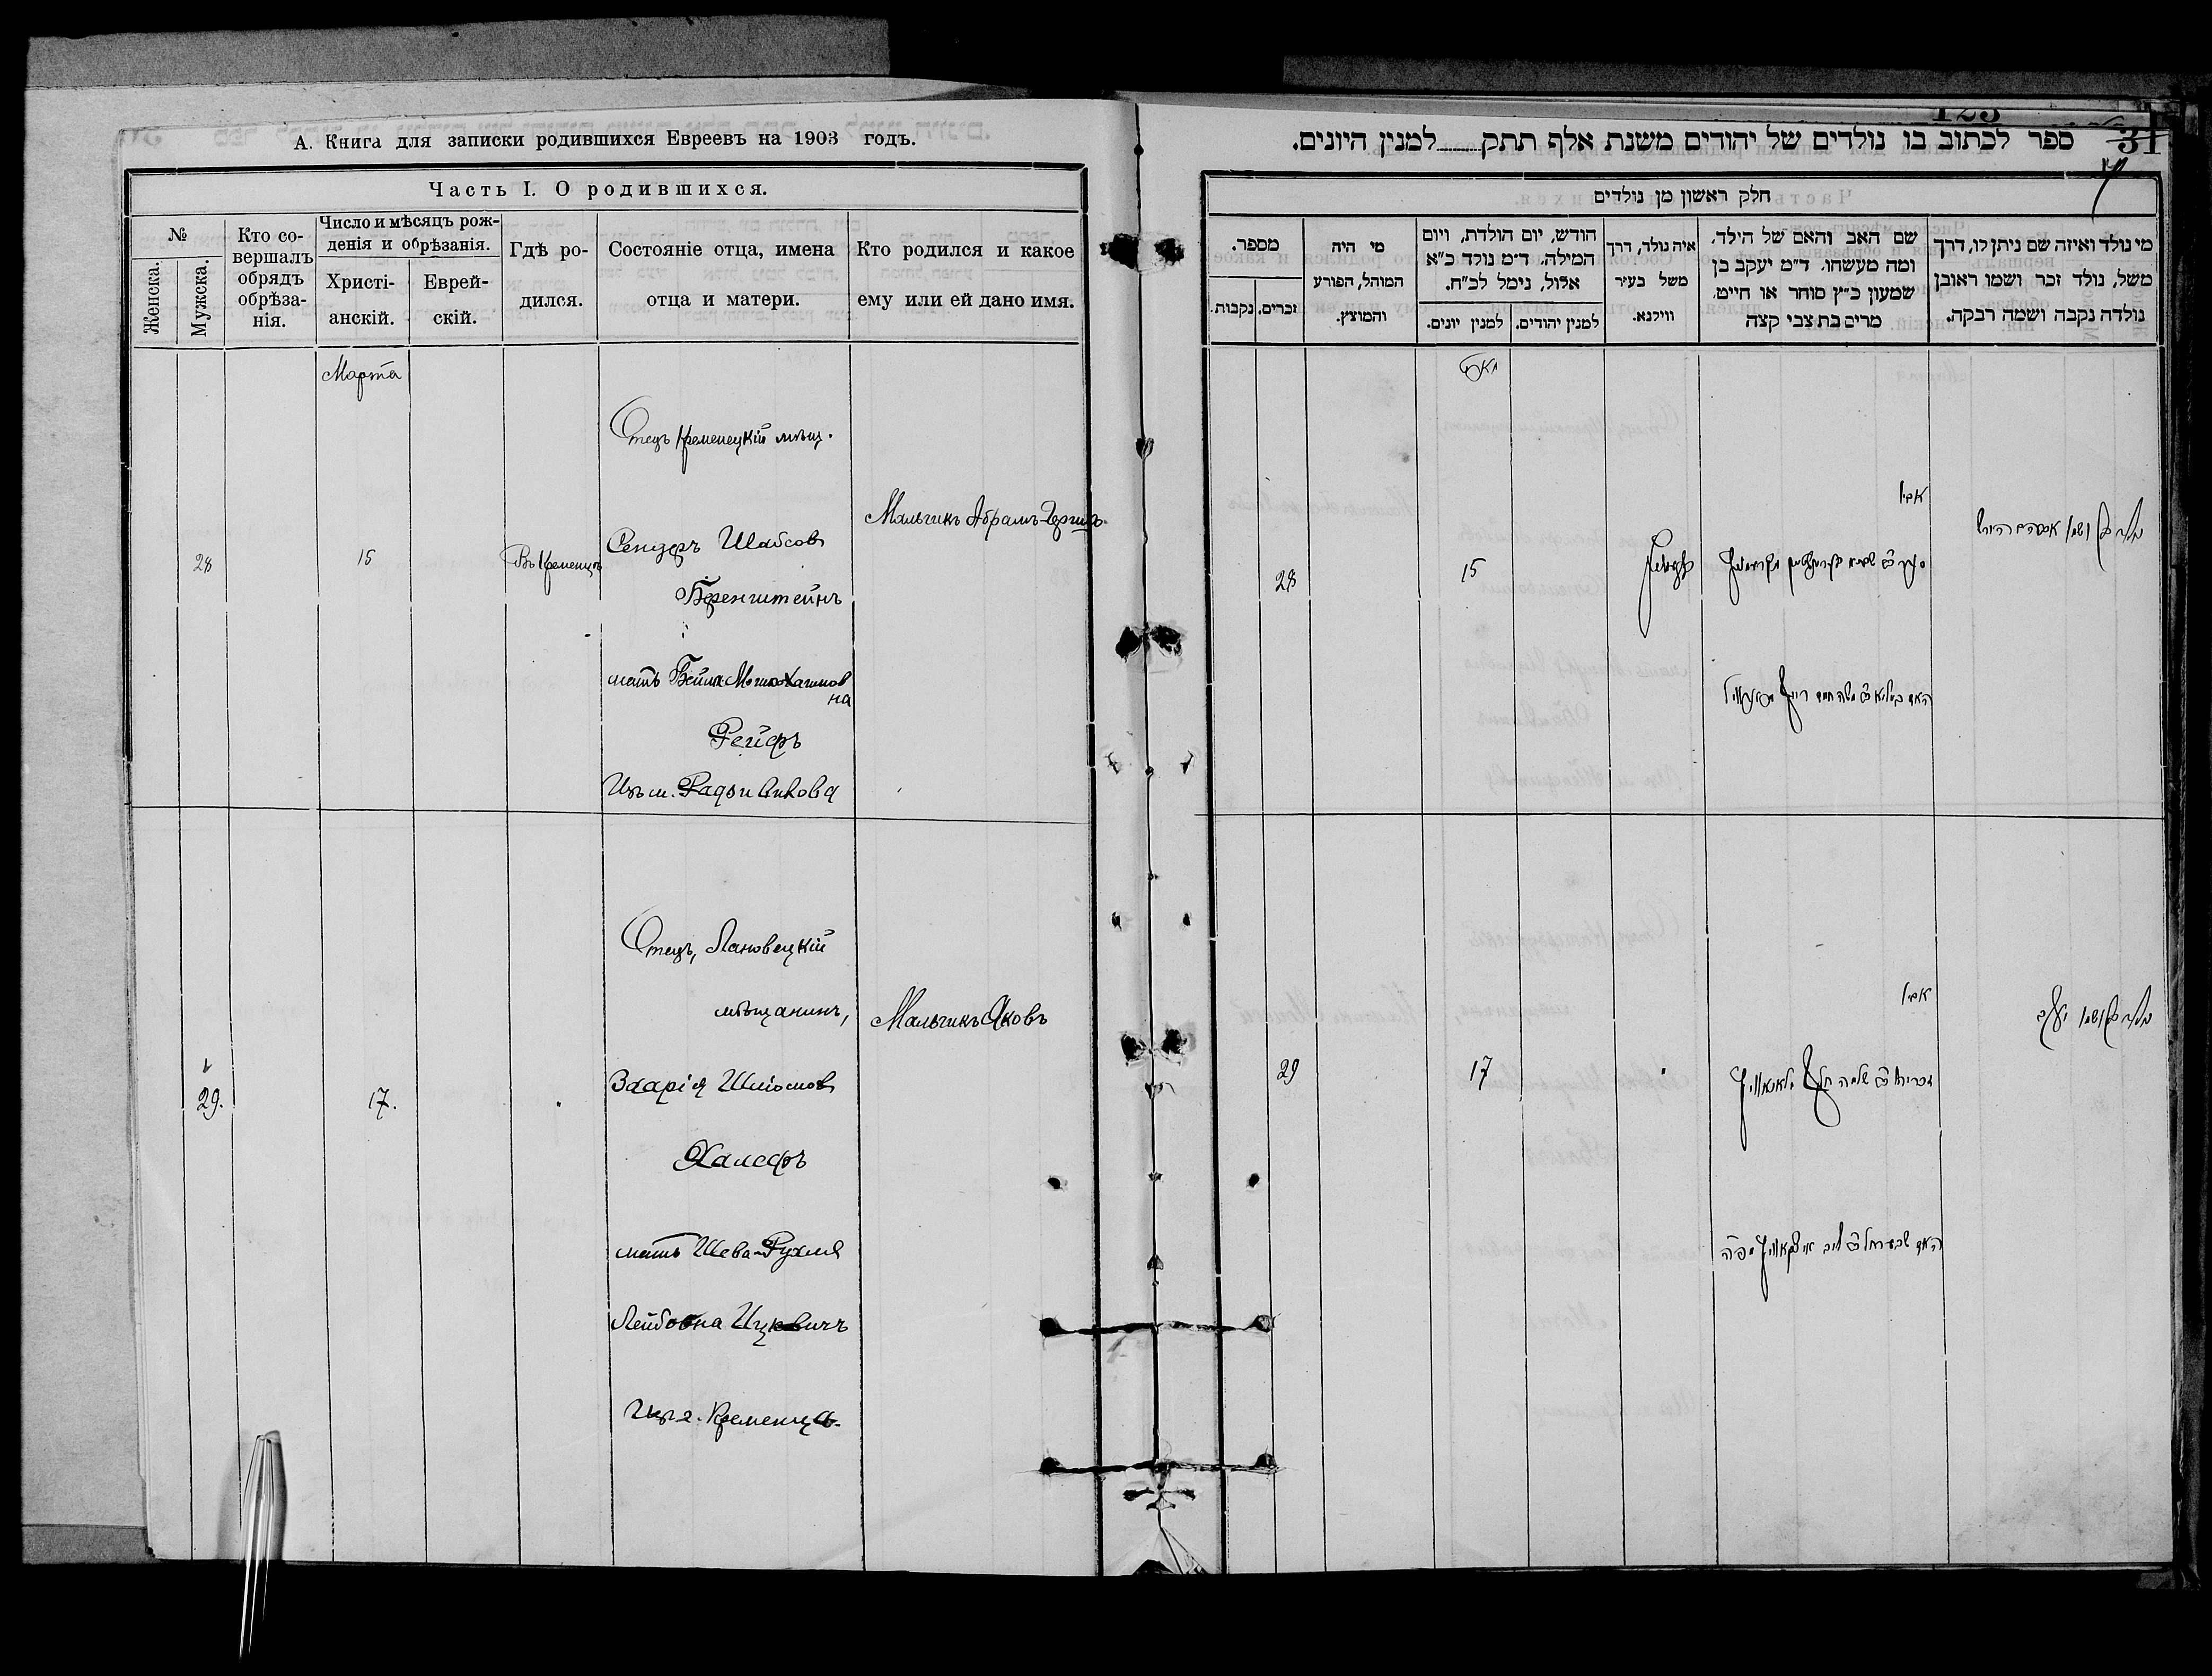 А. Книга для записки родившихся Евреевъ на 1903 годъ.
Часть I. О родившихся.
№
Женска.
Мужска.
Кто со-
вершалъ
обрядъ
обрѣза-
нія.
Число и мѣсяцъ рож-
денія и обрѣзанія.
Христі-
анскій.
Еврей-
скій.
Гдѣ ро-
дился.
Состояніе отца, имена
отца и матери.
Кто родился и какое
ему или ей дано имя.
Марта
28
15
Въ Кременцѣ
Отецъ Кременецкій мѣщ.
Сендеръ Шабсов
Беренштейнъ
мать Бейля Мошко-Хаимов
на
Рейфъ
Изъ м. Радзивилова
Мальчикъ Абрамъ-Гершъ.
29.
17.
Отецъ, Лановецкій
мѣщанинъ,
Захарія Шліомов
Халефъ
мать Шева-Рухля
Лейбовна Ицковичъ
Изъ г. Кременца.
Мальчикъ Яковъ
123
31
ספר לכתוב בו נולדים של יהודים משנת אלף תתק למנין היונים.
חלק ראשון מן נולדים
מי נולד ואיזה שם ניתן לו, דרך
משל, נולד זכר ושמו ראובן
נולדה נקבה ושמה רבקה.
שם האב והאם של הילד,
ומה מעשהו. ד"מ יעקב בן
שמעון כ"ץ סוחר או חייט,
מרים בת צבי קצה
איה נולד, דרך
משל בעיר
ווילנא.
חודש, יום הולדת, ויום
המילה. ד"מ נולד כ"א
אלול, נימל לכ"ח.
למנין יהודים.
למנין יונים.
מי היה
המוהל, הפורע
והמוצץ.
מספר.
זכרים.
נקבות.
נולד בן ושמו אברהם הירש
אביו
האם ביילא בת משה חיים רייף
15
28
נולד בן ושמו יעקב
אביו
זכריה בן שלמה חלף
האם שבע רחל בת ליב איצקאוויץ מפה
17
29